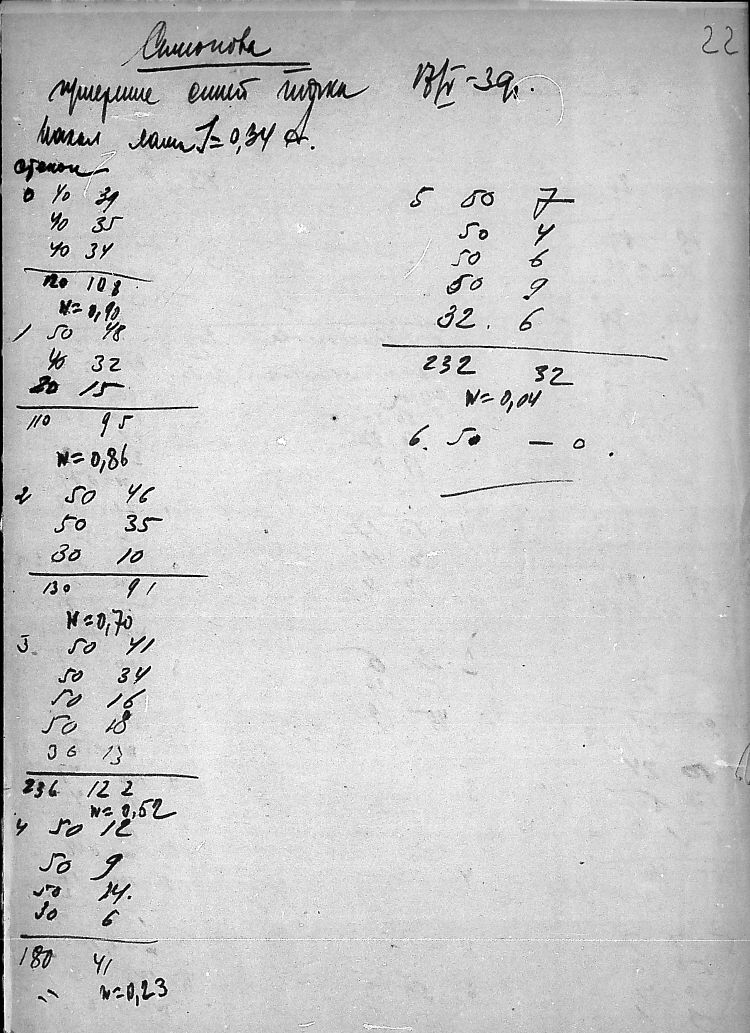 22
Симонова
13/V-39.
I=0,34 а.
стекол
0 40 39
40 35
40 34
120 108
W=0,90
1 50 48
40 32
20 15
110 95
W=0,86
2 50 46
50 35
30 10
130 91
W=0,70
3 50 41
50 34
50 16
50 18
36 13
236 122
W=0,52
4 50 12
50 9
50 14.
30 6
180 41
W=0,23
5 50 7
50 4
50 6
50 9
32. 6
232 32
W=0,04
6. 50 — 0.